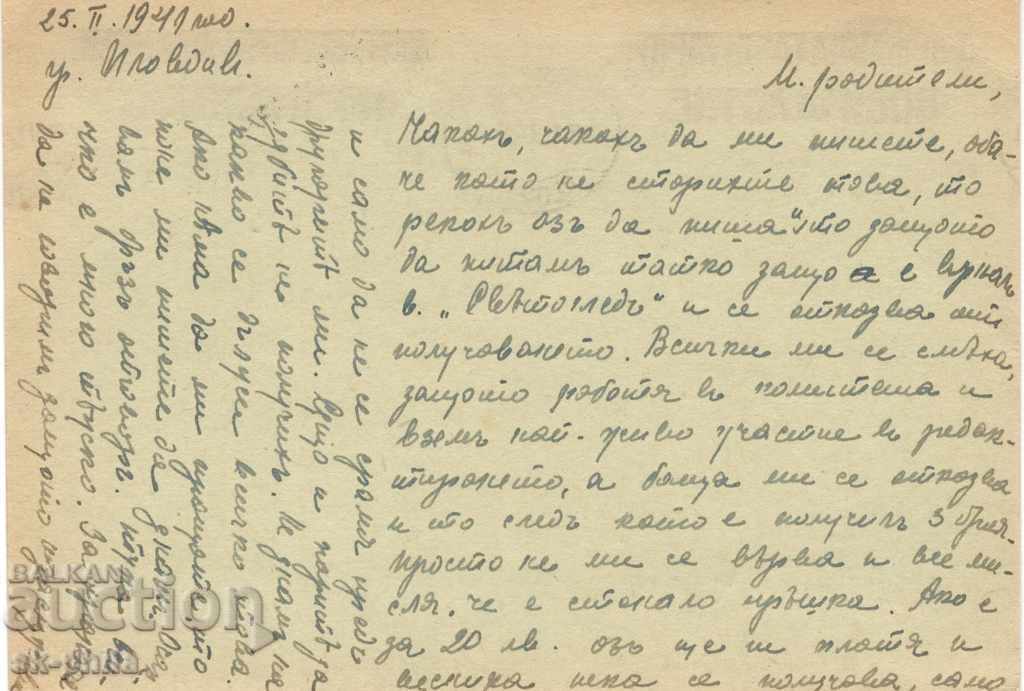 25. II. 1941 год.
гр. Пловдив.
М. родители,
Чакахъ, чакахъ да ми пишете, оба-
че като не сторихте това, то
рекохъ азъ да пиша и то защото
да питамъ татко защо е върналъ
в. „Свѣтогледъ“ и се отказва отъ
получаването. Всички ми се смѣятъ,
защото работя въ комитета и
вземъ най-живо участие въ редак-
тирането, а баща ми се отказва
и то следъ като е получилъ 3 броя,
просто не ми се вѣрва и все ми-
сля, че е станало грѣшка. Ако е
за 20 лв. азъ ще ги платя и
вестника нека се получава, само
и само да не се срамя предъ
другаритѣ ми. Също и паритѣ за
не получихъ. Не знамъ на
какво се дължи всичко това.
Ако нѣма да ми пращате то
поне ми пишете да зная. Оча-
квамъ бързъ отговоръ. Тука
е много
да не защото
BALKAN
auction